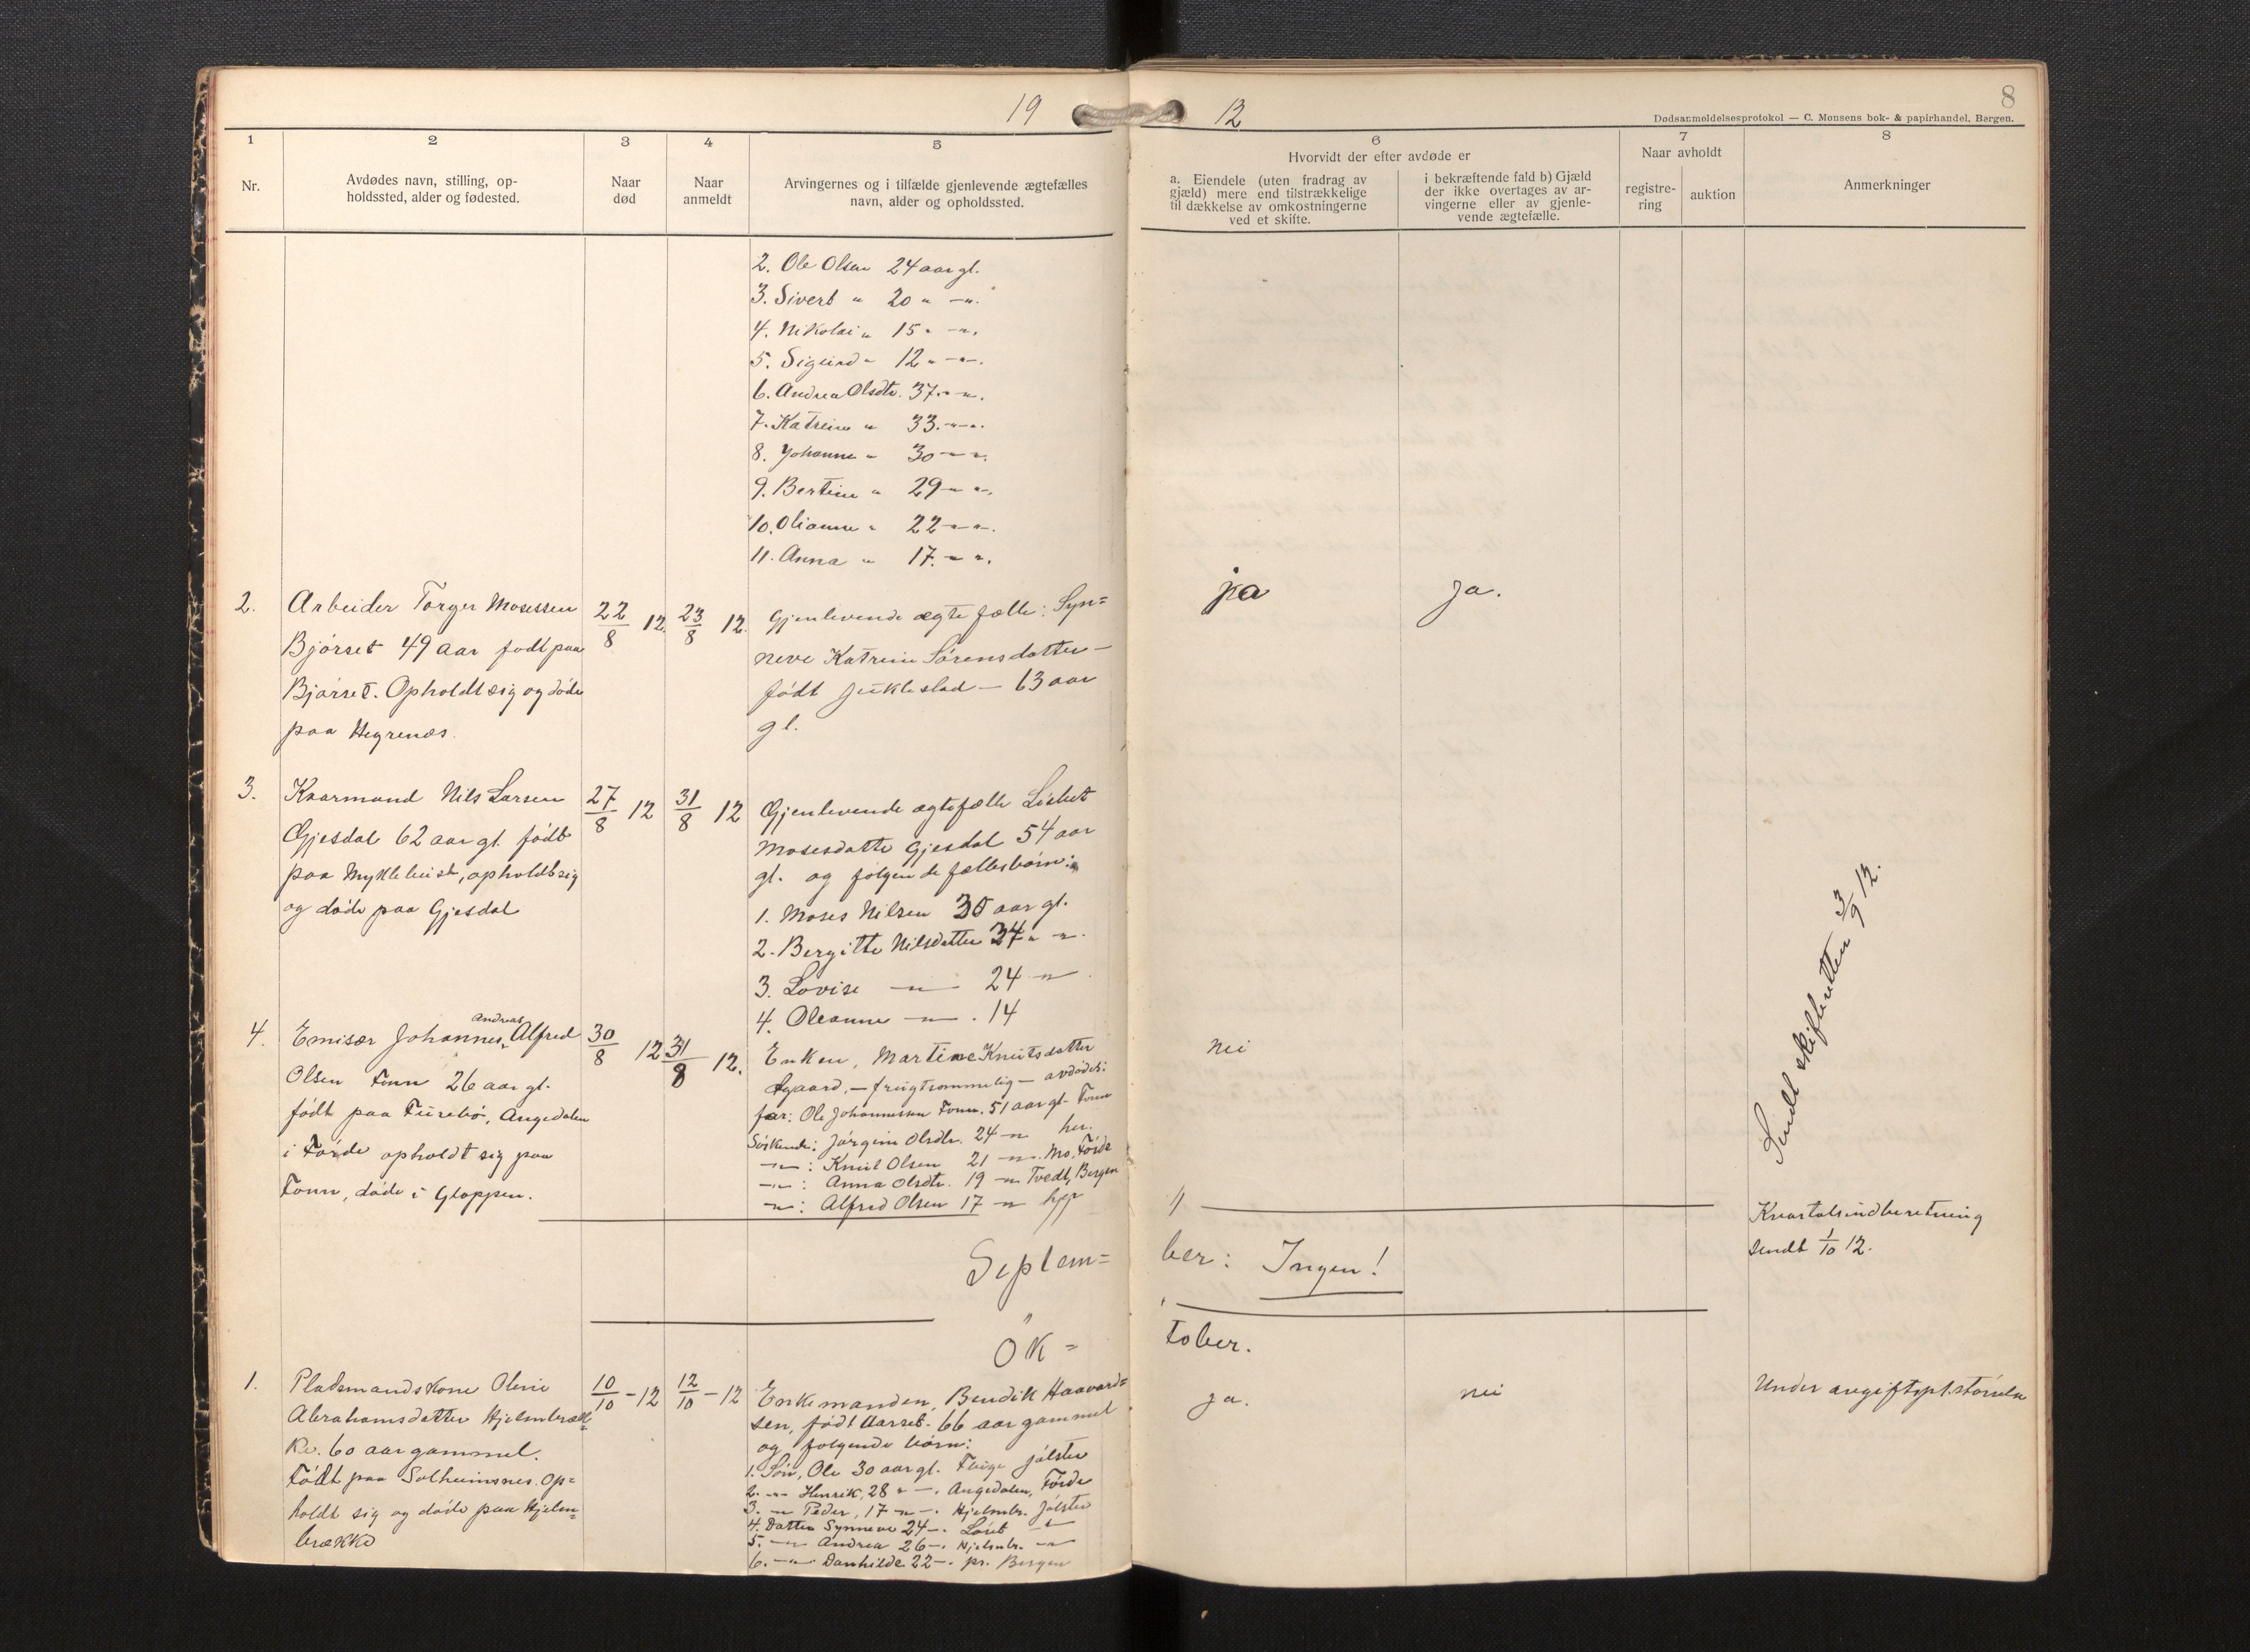 19
12
8
Dødsanmeldelsesprotokol — C. Monsens bok- & papirhandel, Bergen.
1
2
3
4
5
6
7
8
Nr.
Avdødes navn, stilling, op-
holdssted, alder og fødested.
Naar
død
Naar
anmeldt
Arvingernes og i tilfælde gjenlevende ægtefælles
navn, alder og opholdssted.
Hvorvidt der efter avdøde er
a. Eiendele (uten fradrag av
gjæld) mere end tilstrækkelige
til dækkelse av omkostningerne
ved et skifte.
i bekræftende fald b) Gjæld
der ikke overtages av ar-
vingerne eller av gjenle-
vende ægtefælle.
Naar avholdt
registre-
ring
auktion
Anmerkninger
2. Ole Olsen 24 aar gl.
3. Sivert " 20 " —".
4. Nikolai " 15 " —".
5. Sigurd " 12 " —".
6. Andrea Olsdtr. 37 " —".
7. Katrine " 33. —".
8. Johanne " 30 — ".
9. Bertine " 29 — ".
10. Olianne " 22 — ".
11. Anna " 17. — ".
2.
Arbeider Torger Mosessen
Bjørset 49 aar født paa
Bjørset. Opholdt sig og døde
paa Hegrenæs.
22/8 12.
23/8 12.
Gjenlevende ægtefælle: Syn=
neve Katrine Sørensdatter —
født Jukleslad — 63 aar
gl.
ja
ja.
3.
Kaarmand Nils Larsen
Gjesdal 62 aar gl. født
paa Myklebust, opholdt sig
og døde paa Gjesdal
27/8 12
31/8 12
Gjenlevende ægtefælle Lisbet
Mosesdatter Gjesdal 54 aar
gl. og følgende fællesbørn:
1. Moses Nilsen 35 aar gl.
2. Bergitte Nilsdatter 34 " —".
3. Lovise —"— 24 —"—
4. Oleanne —"— . 14
Sendt skifteretten 3/9 12.
4.
Emisær Johannes Andreas Alfred
Olsen Fonn 26 aar gl.
født paa Furebø, Angedalen
i Førde opholdt sig paa
Fonn, døde i Gloppen.
30/8 12
31/8 12.
Enken, Martine Knutsdatter
— frugtsommelig — avdødes:
far: Ole Johannessen Fonn. 51 aar gl. Fonn
Søskende: Jørgine Olsdtr. 24 —"— her.
—"—: Knut Olsen 21 —"—. Mo, Førde
—"—: Anna Olsdtr. 19 —"— Tvedt, Bergen
—"—: Alfred Olsen 17 —"—
nei
Kvartalsindberetning
sendt 1/10 12.
Septem=
ber: Ingen!
Ok =
tober.
1.
Pladsmandskone Oline
Abrahamsdatter Hjelmbræk=
ke. 60 aar gammel.
Født paa Solheimsnes. Op=
holdt sig og døde paa Hjelm=
brække
10/10 - 12
12/10 - 12
Enkemanden, Bendik Haavard=
sen, født Aarset. 66 aar gammel
og følgende børn:
1. Søn, Ole 30 aar gl. Flugе Jølster
2. —"— Henrik, 28 " —. Angedalen, Førde
3. —"— Peder, 17 —"—. Hjelmbr. Jølster
4. Datter Synneve 24 —. —"—
5. —"— Andrea 26 —. Hjelmbr. —"—
6. —"— Danhilde 22 —. pr. Bergen
ja.
nei
Under avgiftspl. størrelse